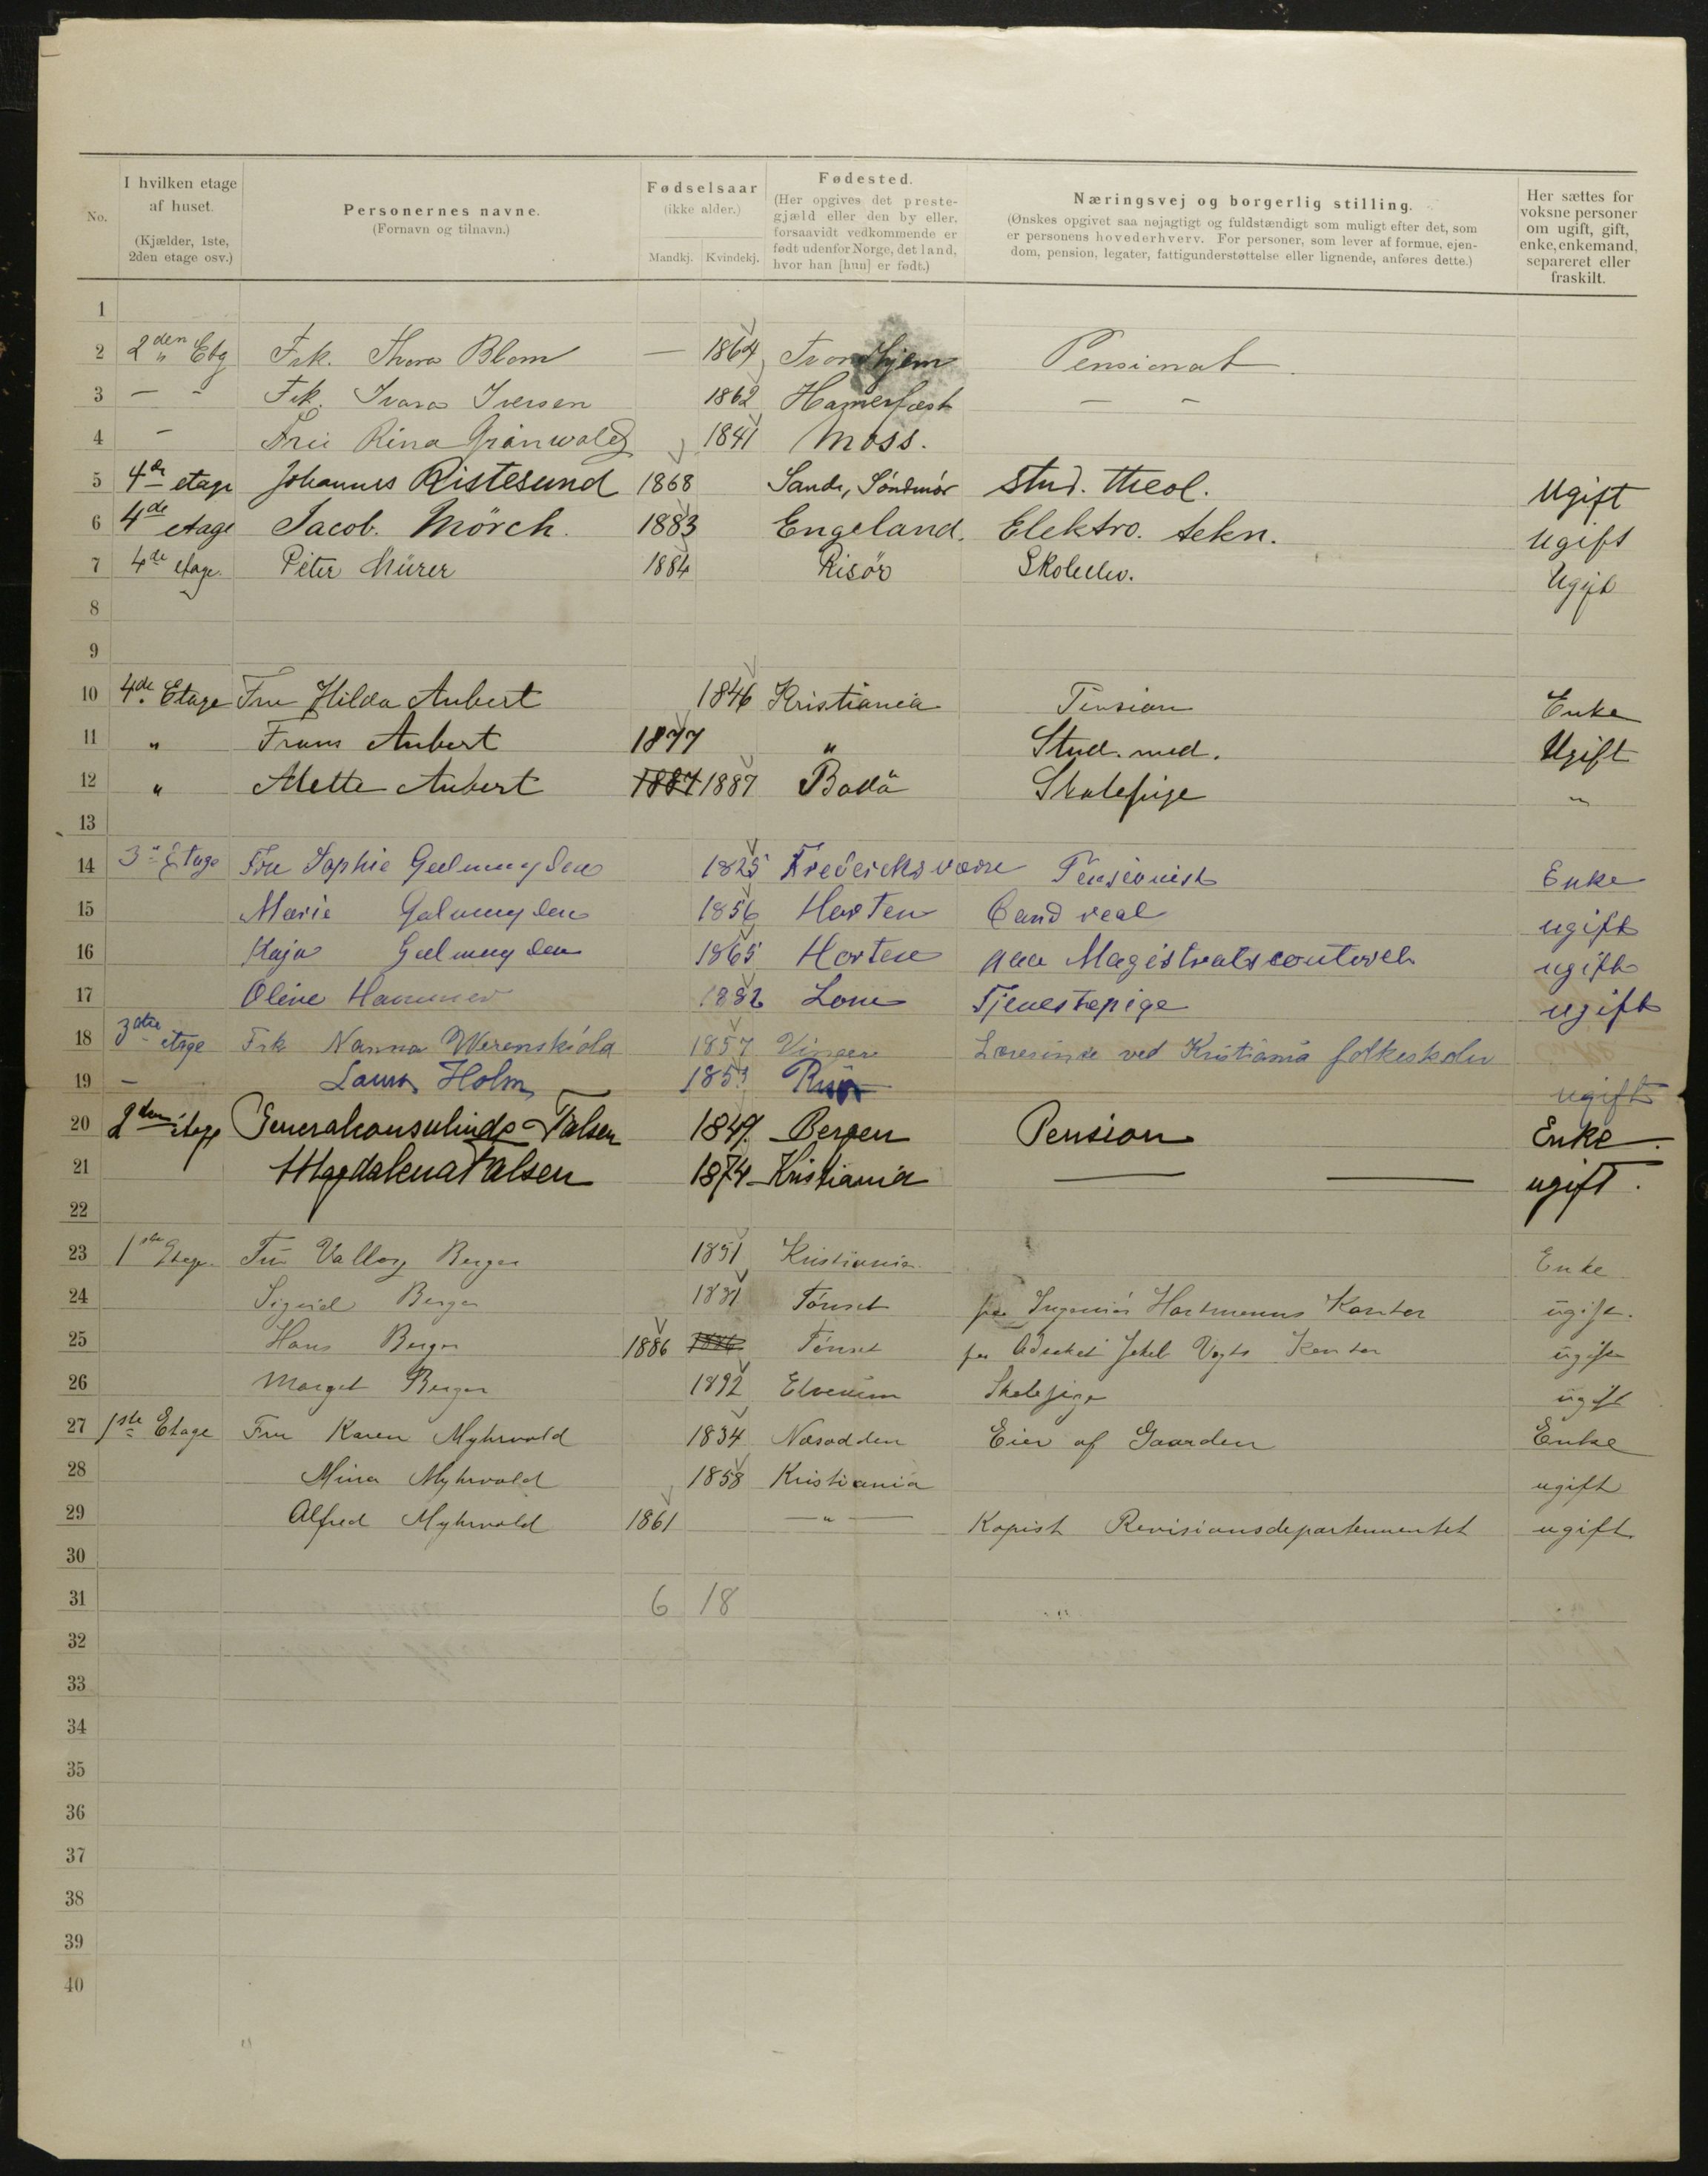 No.
I hvilken etage af huset. (Kjælder, 1ste, 2den etage osv.)
Personernes navne. (Fornavn og tilnavn.)
Fødselsaar (ikke alder.) Mandkj. Kvindekj.
Fødested. (Her opgives det prestegjæld eller den by eller, forsaavidt vedkommende er født udenfor Norge, det land, hvor han [hun] er født.)
Næringsvej og borgerlig stilling. (Ønskes opgivet saa nøjagtigt og fuldstændigt som muligt efter det, som er personens hovederhverv. For personer, som lever af formue, ejendom, pension, legater, fattigunderstøttelse eller lignende, anføres dette.)
Her sættes for voksne personer om ugift, gift, enke, enkemand, separeret eller fraskilt.
1
2 2den Etg Frk. Thora Blom — 1864 Trondhjem Pensionat.
3 — - Frk. Ivara Iversen 1862 Hamerfest — -
4 - Frü Rina Grünwald 1841 Moss.
5 4de etage Johannes Ristesund 1868 Sande, Søndmør stud. theol. Ugift
6 4de etage Jacob. Mörch. 1883 Engeland. Elektro. tekn. Ugift
7 4de etage. Peter Mürer 1884 Risör Skoleelev. Ugift
8
9
10 4de Etage Fru Hilda Aubert 1846 Kristiania Pension Enke
11 " Frans Aubert 1877 " Stud. med. Ugift
12 " Mette Aubert 1887 1887 Bodö Skolepige "
13
14 3e Etage Fru Sophie Geelmuyden 1825 Frederiksværn Pensionist Enke
15 Marie Gelmuyden 1856 Horten Cand real ugift
16 Kaja Geelmuyden 1865 Horten paa Magistratscontoret ugift
17 Oline Hammer 1882 Lom Tjenestepige ugift
18 3die etage Frk Nanna Werenskiold 1857 Vinger Lærerinde ved Kristiania folkeskoler
19 — Laura Holm 185 ugift
20 2den etage Generalkonsulinde Falsen 1849. Bergen Pension Enke.
21 Magdalena Falsen 1874 Kristiania — — ugift.
22
23 1ste Etage Frü Valborg Berger 1851 Kristiania Enke
24 Sigrid Berger 1881 Tönset paa Ingeniör Hartmanns Kontor ugift.
25 Hans Berger 1886 1886 Tönset paa Kontor ugift
26 Marget Berger 1892 Elverum Skolepige ugift
27 1ste Etage Fru Karen Myhrvold 1834 Næsodden Eier af Gaarden Enke
28 Mina Myhrvold 1858 Kristiania ugift
29 Alfred Myhrvold 1861 — " — Kopist Revisionsdepartementet ugift
30
31 6 18
32
33
34
35
36
37
38
39
40